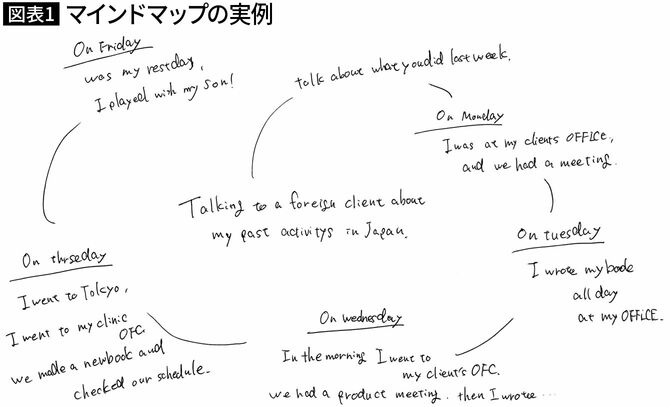 図表1 マインドマップの実例
Talking to a foreign client about
my past activitys in Japan.
talk about what you did last week.
On Monday
I was at my clients OFFICE,
and we had a meeting.
On tuesday
I wrote my booke
all day
at my OFFICE.
On wednesday
In the morning I went to
my client's OFC.
we had a product meeting. then I wrote...
On thrseday
I went to Tokyo,
I went to my clinic
OFC.
we made a newbook and
checked our schedule.
On Friday
was my restday,
I played with my son!